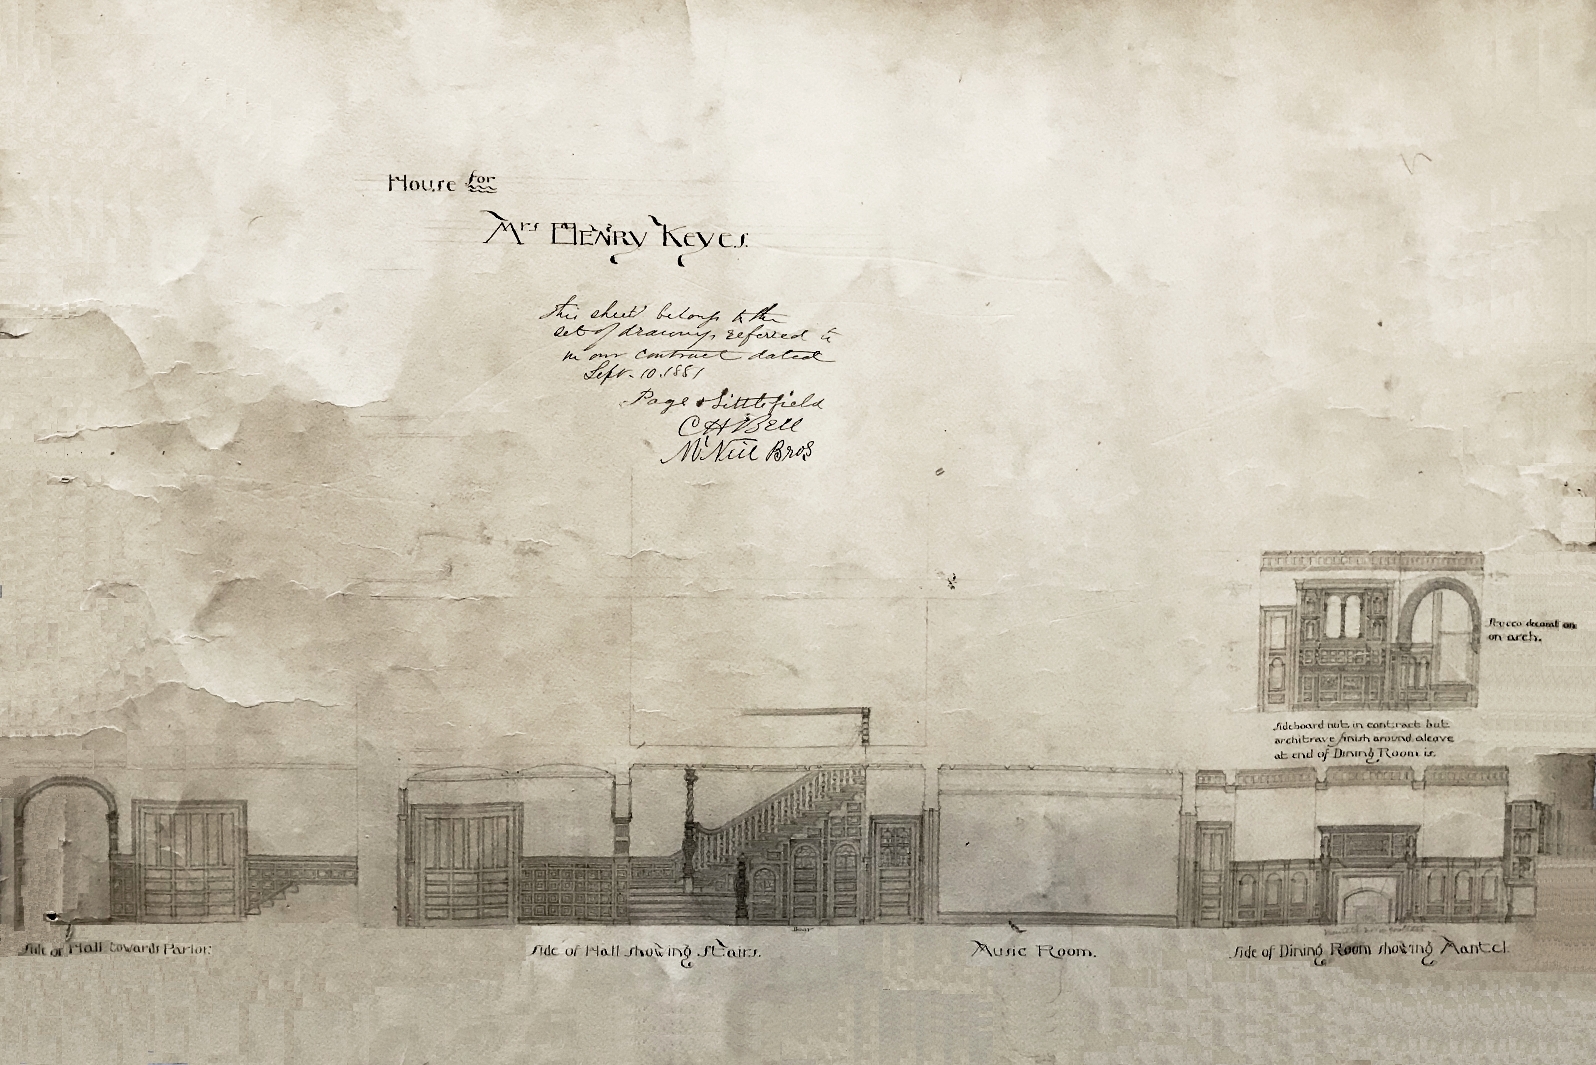 House for
Mrs HENRY Keyes.
This sheet belongs to the
set of drawings referred to
in our contract dated
Sept. 10. 1881
Page & Littlefield
C H Bell
McNeil Bros
Stucco decoration
on arch.
Sideboard not in contract but
architrave finish around alcove
at end of Dining Room is.
Side of Hall towards Parlor.
Side of Hall showing Stairs.
Music Room.
Side of Dining Room showing Mantel.